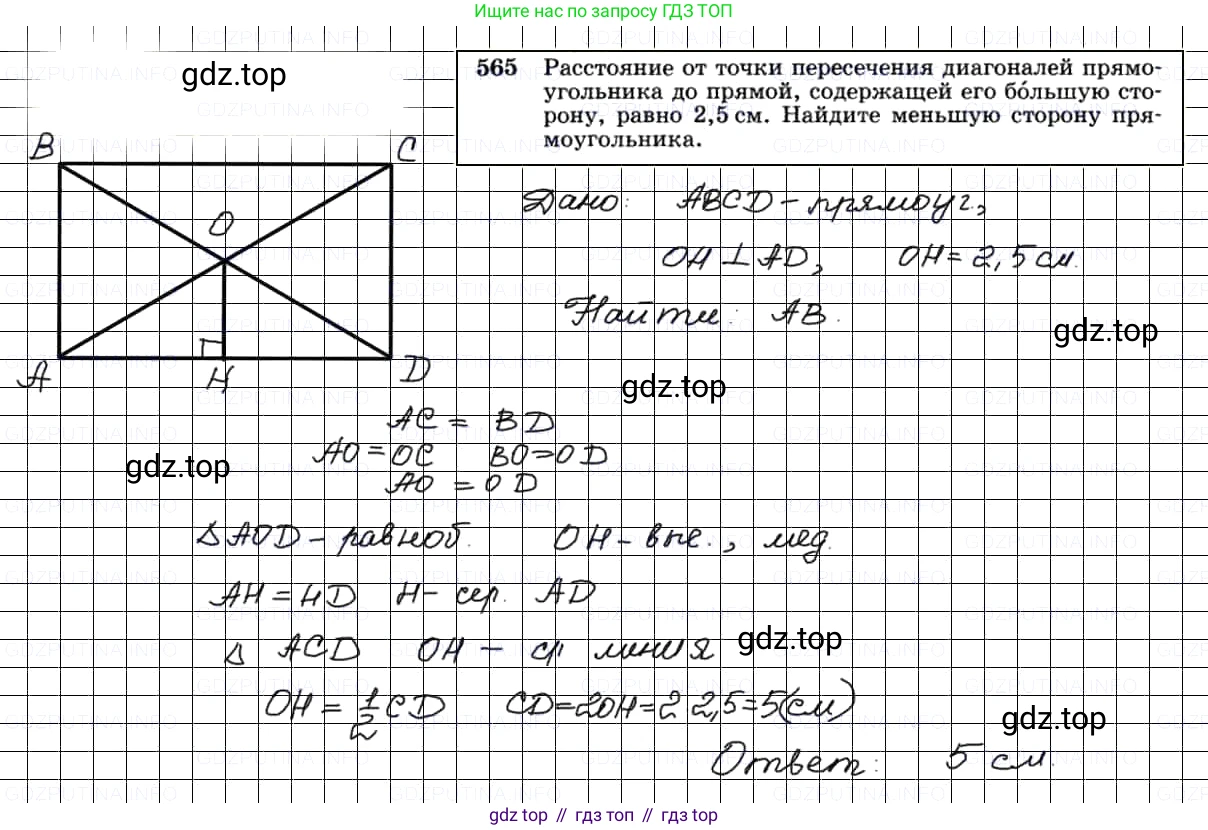 Ищите нас по запросу ГДЗ ТОП
gdz.top
565 Расстояние от точки пересечения диагоналей прямо-
угольника до прямой, содержащей его бо́льшую сто-
рону, равно 2,5 см. Найдите меньшую сторону пря-
моугольника.
B C
O
A H D
Дано: ABCD - прямоуг.,
OH ⊥ AD, OH = 2,5 см.
Найти: AB.
gdz.top
gdz.top
AC = BD
AO = OC BO = OD
gdz.top
AO = OD
Δ AOD - равноб. OH - выс., мед.
AH = HD H - сер. AD
Δ ACD OH - ср линия
gdz.top
OH = 1/2 CD CD = 2OH = 2 2,5 = 5(см)
gdz.top
Ответ: 5 см.
gdz топ // гдз топ // гдз top